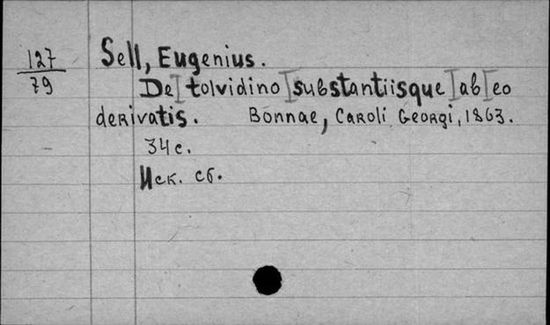 127
79
Sell, Eugenius.
De] tolvidino [substantiisque] ab] eo
derivatis. Bonnae, Caroli Georgi, 1863.
34 с.
Иск. сб.